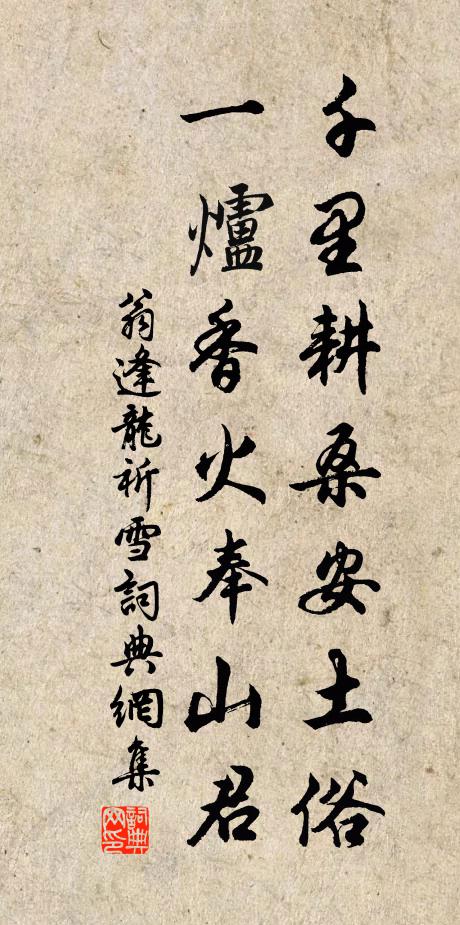 千里耕桑安土俗
一爐香火奉山君
翁逢龍祈雪詞典網集
詞典网印